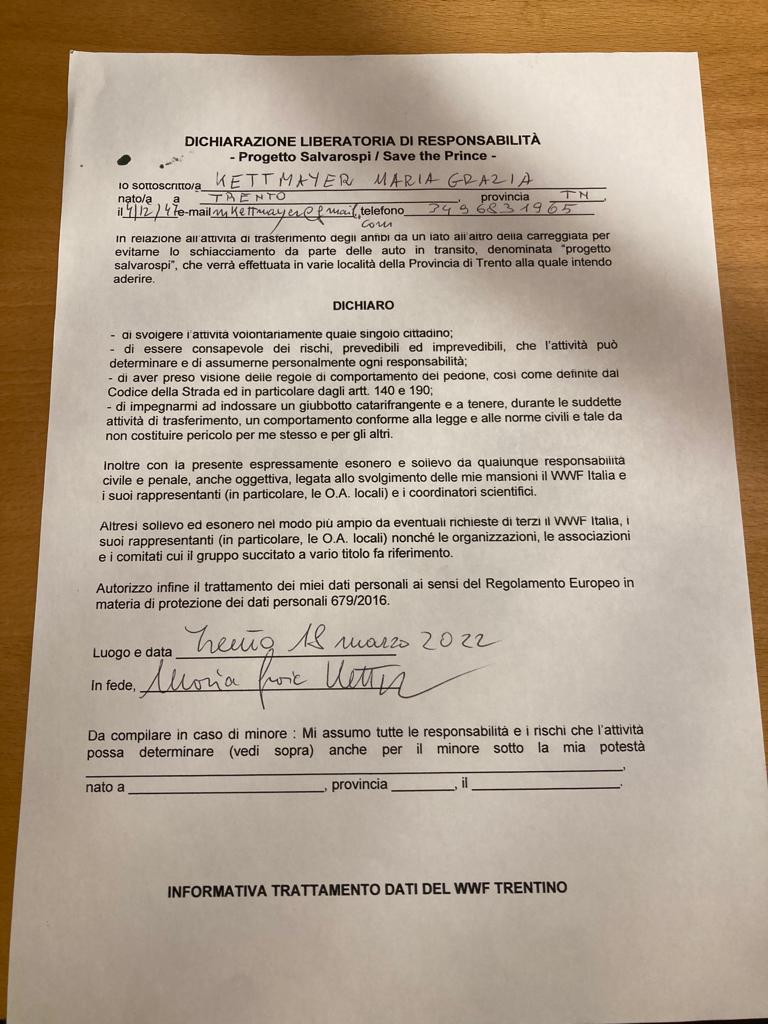 DICHIARAZIONE LIBERATORIA DI RESPONSABILITÀ
- Progetto Salvarospi / Save the Prince -
Io sottoscritto/a KETTMAYER MARIA GRAZIA
nato/a a TRENTO provincia TN
il 4/12/47 e-mail mkettmayer@gmail, telefono 349 6831965
com
In relazione all'attività di trasferimento degli anfibi da un lato all'altro della carreggiata per
evitarne lo schiacciamento da parte delle auto in transito, denominata "progetto
salvarospi", che verrà effettuata in varie località della Provincia di Trento alla quale intendo
aderire.
DICHIARO
- di svolgere l'attività volontariamente quale singolo cittadino;
- di essere consapevole dei rischi, prevedibili ed imprevedibili, che l'attività può
determinare e di assumerne personalmente ogni responsabilità;
- di aver preso visione delle regole di comportamento del pedone, così come definite dal
Codice della Strada ed in particolare dagli artt. 140 e 190;
- di impegnarmi ad indossare un giubbotto catarifrangente e a tenere, durante le suddette
attività di trasferimento, un comportamento conforme alla legge e alle norme civili e tale da
non costituire pericolo per me stesso e per gli altri.
Inoltre con la presente espressamente esonero e sollevo da qualunque responsabilità
civile e penale, anche oggettiva, legata allo svolgimento delle mie mansioni il WWF Italia e
i suoi rappresentanti (in particolare, le O.A. locali) e i coordinatori scientifici.
Altresì sollevo ed esonero nel modo più ampio da eventuali richieste di terzi il WWF Italia, i
suoi rappresentanti (in particolare, le O.A. locali) nonché le organizzazioni, le associazioni
e i comitati cui il gruppo succitato a vario titolo fa riferimento.
Autorizzo infine il trattamento dei miei dati personali ai sensi del Regolamento Europeo in
materia di protezione dei dati personali 679/2016.
Luogo e data Trento 18 marzo 2022
In fede, Maria Grazia Kett
Da compilare in caso di minore : Mi assumo tutte le responsabilità e i rischi che l'attività
possa determinare (vedi sopra) anche per il minore sotto la mia potestà
,
nato a , provincia , il .
INFORMATIVA TRATTAMENTO DATI DEL WWF TRENTINO